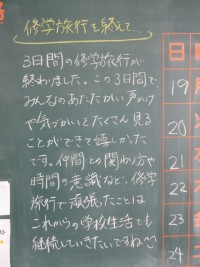 修学旅行を終えて…
3日間の修学旅行が
終わりました。この3日間で、
みんなのあたたかい声かけ
や気づかいをたくさん見る
ことができて嬉しかった
です。仲間との関わり方や
時間の意識など、修学
旅行で頑張ったことは
これからの学校生活でも
継続していきたいですね
日
19 月
20
21
22
23
24